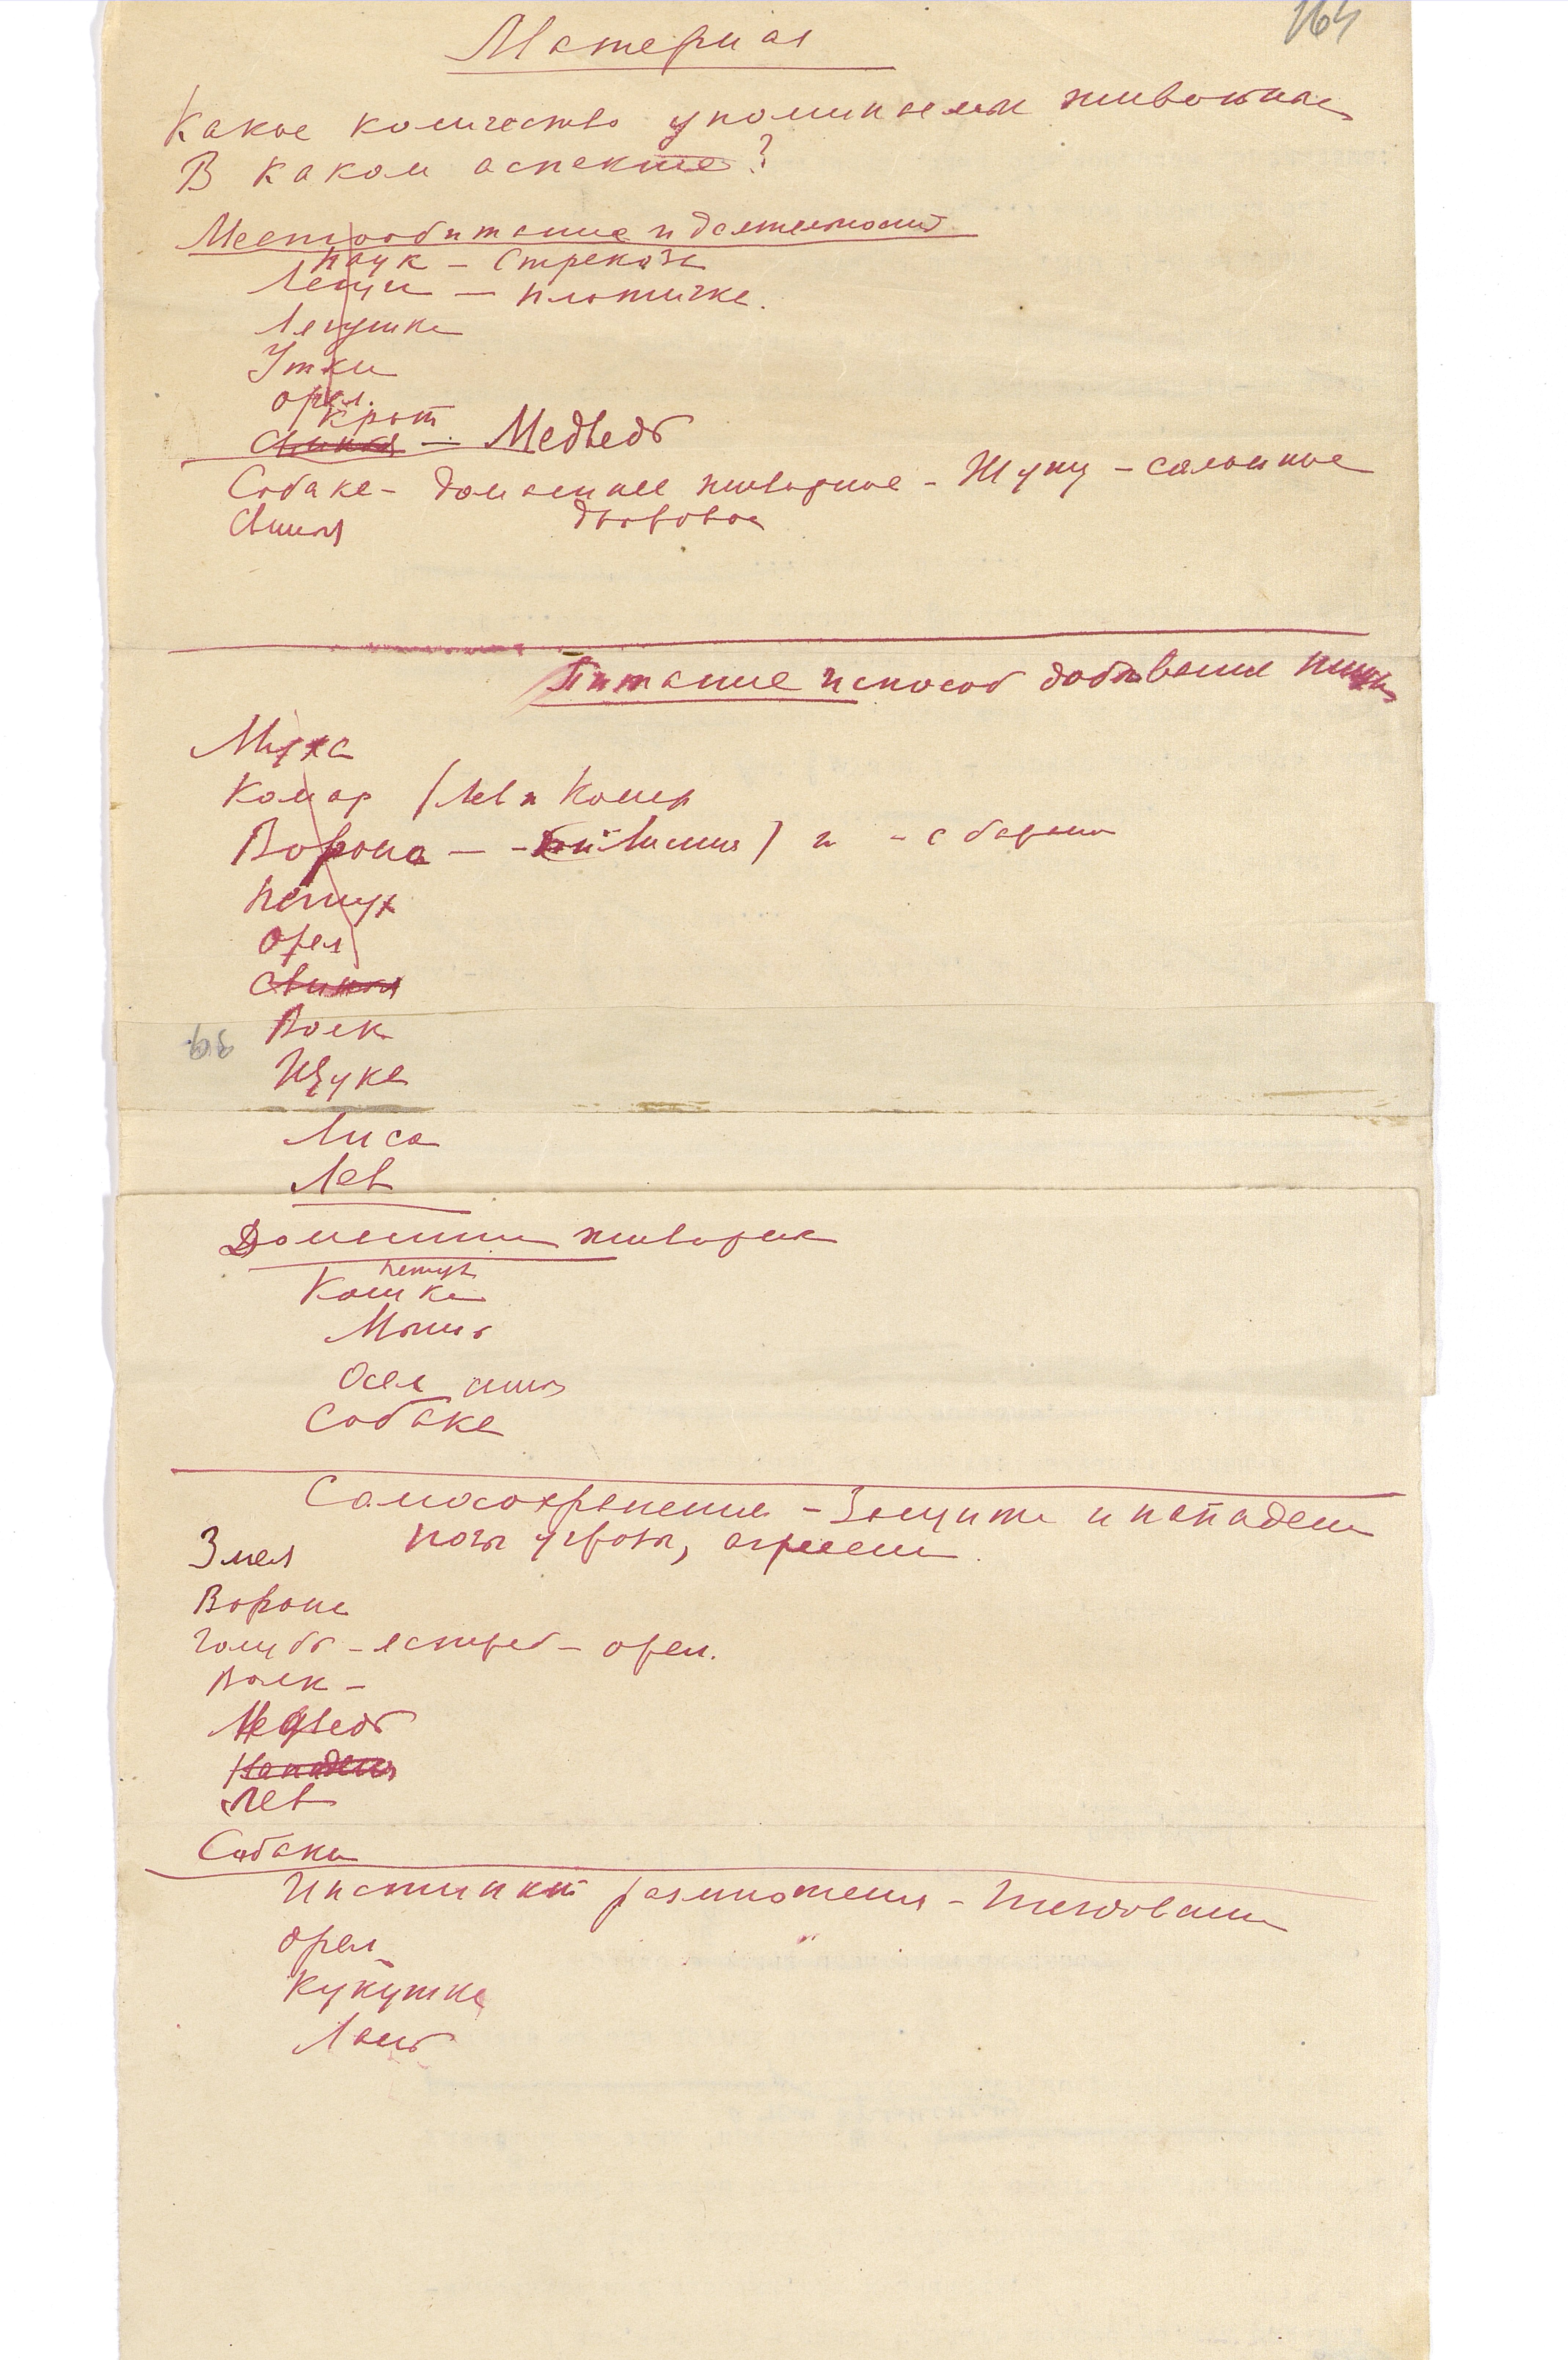 164
Материал
Какое количество упоминаем животных
В каком аспекте?
Местообитание и деятельность
Паук – Стрекоза
Лещи – плотичка.
Лягушка
Утки
орел.
Крот
Свинья – Медведь
Собака – домашнее животное – Жужу – сальные
Свинья дворовое
Питание и способ добывания пищи
Муха
Комар (Лев и Комар
Ворона – Лисица) и –
Петух
орел
Свинья
Волк
Щука
Лиса
Лев
Домашние животные
петух
Кошка
Мышь
Осел
Собака
Самосохранение – Защита и нападение
позы угрозы, агрессии
Змея
Ворона
голубь – ястреб – орел.
Волк –
Медведь
Нападения
Лев
Собаки
Инстинкт размножения – Гнездование
орел
Кукушка
Лань